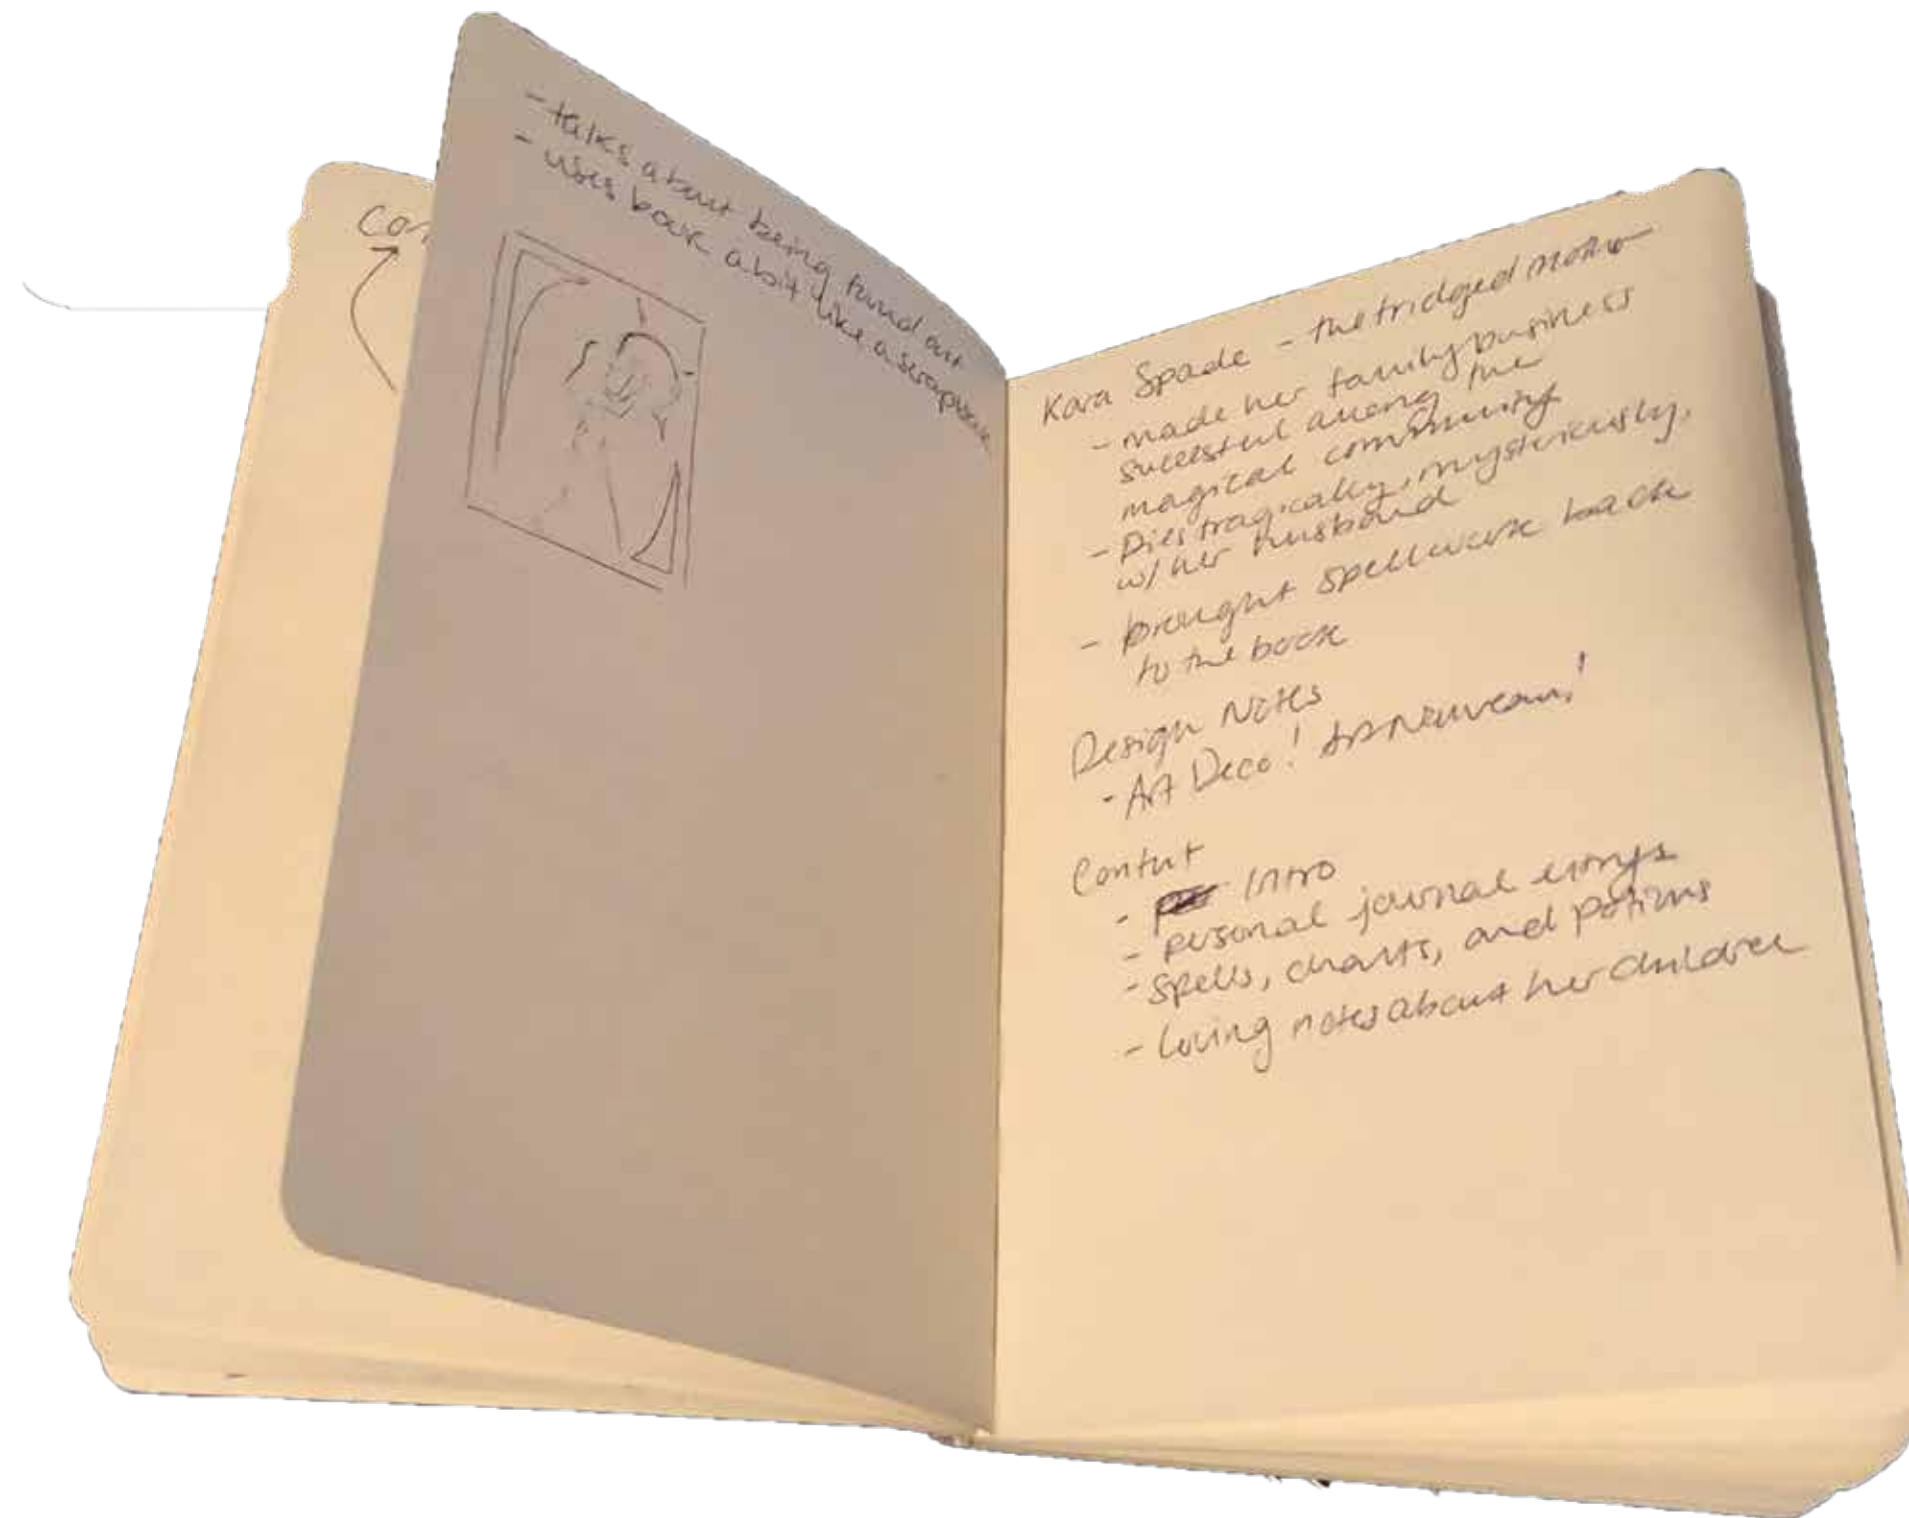 Con
- talks about being found out
- uses book a bit like a scrapbook
Kara Spade - the
- made her family business
successful among the
magical community
- Dies tragically, mysteriously,
w/ her husband
- brought spellwork back
to the book
Design Notes
- Art Deco! Art Nouveau!
Content
- Intro
- personal journal entrys
- spells, charts, and potions
- loving notes about her children